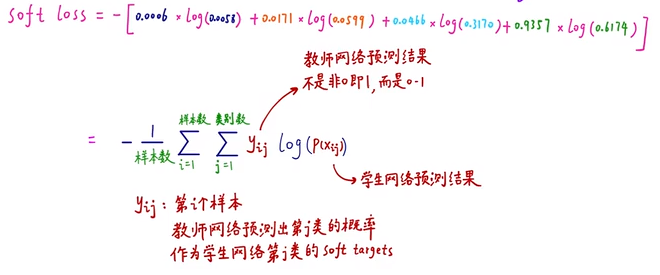 soft loss = - [ 0.0006 × log(0.0058) + 0.0171 × log(0.0599) + 0.0466 × log(0.3170) + 0.9357 × log(0.6174) ]
教师网络预测结果
不是非0即1, 而是0-1
样本数 类别数
= - 1/样本数 ∑ ∑ yij log(P(xij))
i=1 j=1
学生网络预测结果
yij: 第i个样本
教师网络预测出第j类的概率
作为学生网络第j类的soft targets